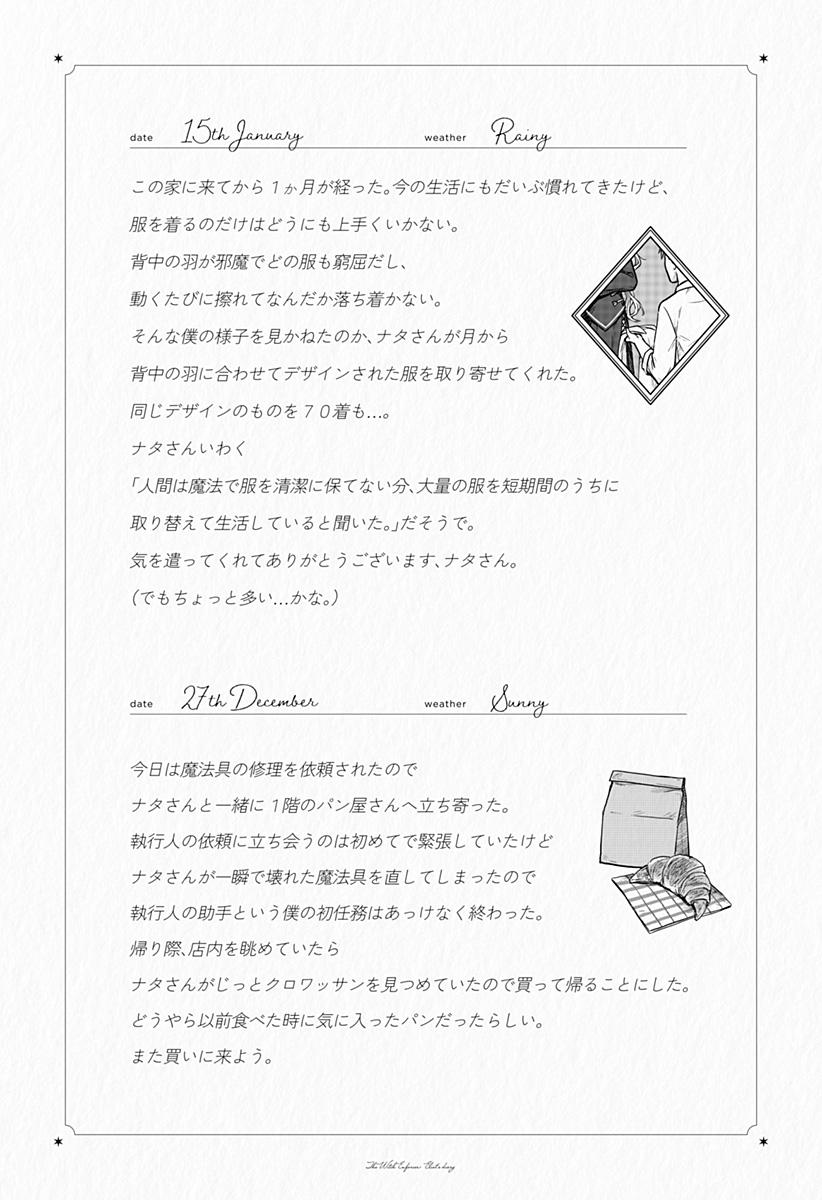 date 15th January weather Rainy
この家に来てから１ヵ月が経った。今の生活にもだいぶ慣れてきたけど、
服を着るのだけはどうにも上手くいかない。
背中の羽が邪魔でどの服も窮屈だし、
動くたびに擦れてなんだか落ち着かない。
そんな僕の様子を見かねたのか、ナタさんが月から
背中の羽に合わせてデザインされた服を取り寄せてくれた。
同じデザインのものを７０着も…。
ナタさんいわく
「人間は魔法で服を清潔に保てない分、大量の服を短期間のうちに
取り替えて生活していると聞いた。」だそうで。
気を遣ってくれてありがとうございます、ナタさん。
（でもちょっと多い…かな。）
date 27th December weather Sunny
今日は魔法具の修理を依頼されたので
ナタさんと一緒に１階のパン屋さんへ立ち寄った。
執行人の依頼に立ち会うのは初めてで緊張していたけど
ナタさんが一瞬で壊れた魔法具を直してしまったので
執行人の助手という僕の初任務はあっけなく終わった。
帰り際、店内を眺めていたら
ナタさんがじっとクロワッサンを見つめていたので買って帰ることにした。
どうやら以前食べた時に気に入ったパンだったらしい。
また買いに来よう。
The Witch Enforcer